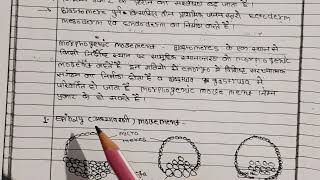 blastomere पुनः विभाजित होकर प्राथमिक जनन स्तर ectoderm
mesoderm एवं endoderm का निर्माण करते हैं।
morphogenic movement - blastomeres के एक स्थान से
किसी निश्चित स्थान पर सामूहिक स्थानान्तरण को morphogenic
movement कहते हैं इन गतियों से embryo में विशिष्ट संरचनात्मक
संगठन का निर्माण होता है व blastula gastrula में
परिवर्तित हो जाता है morphogenic movement निम्न
प्रकार के हो सकते हैं।
1. Epiboly movement -
micro
meres